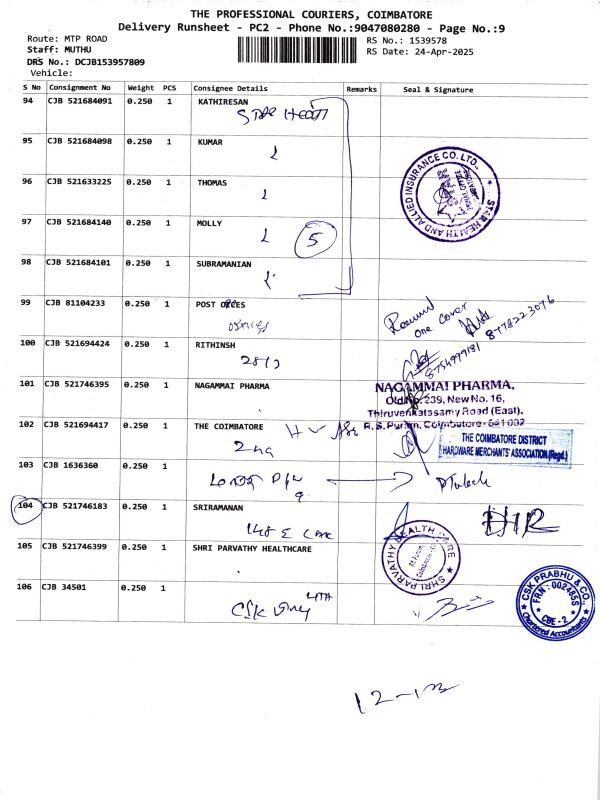 THE PROFESSIONAL COURIERS, COIMBATORE
Delivery Runsheet - PC2 - Phone No.:9047080280 - Page No.:9
Route: MTP ROAD
RS No.: 1539578
Staff: MUTHU
RS Date: 24-Apr-2025
DRS No.: DCJB153957809
Vehicle:
S No Consignment No Weight PCS Consignee Details Remarks Seal & Signature
94 CJB 521684091 0.250 1 KATHIRESAN
Star Health
95 CJB 521684098 0.250 1 KUMAR
96 CJB 521633225 0.250 1 THOMAS
STAR HEALTH AND ALLIED INSURANCE CO. LTD.
97 CJB 521684140 0.250 1 MOLLY
5
98 CJB 521684101 0.250 1 SUBRAMANIAN
99 CJB 81104233 0.250 1 POST
one cover
8778223076
100 CJB 521694424 0.250 1 RITHINSH
8754999181
101 CJB 521746395 0.250 1 NAGAMMAI PHARMA
NAGAMMAI PHARMA,
Old No. 239, New No. 16,
Thiruvenkatasamy Road (East),
R. S. Puram, Coimbatore - 641 002
102 CJB 521694417 0.250 1 THE COIMBATORE
THE COIMBATORE DISTRICT
HARDWARE MERCHANTS' ASSOCIATION (Regd.)
103 CJB 1636360 0.250 1
104 CJB 521746183 0.250 1 SRIRAMANAN
105 CJB 521746399 0.250 1 SHRI PARVATHY HEALTHCARE
SHRI PARVATHY HEALTH CARE
106 CJB 34501 0.250 1
CSK
CSK PRABHU & CO.,
FRN : 002485S
CBE - 2
Chartered Accountants
12-13